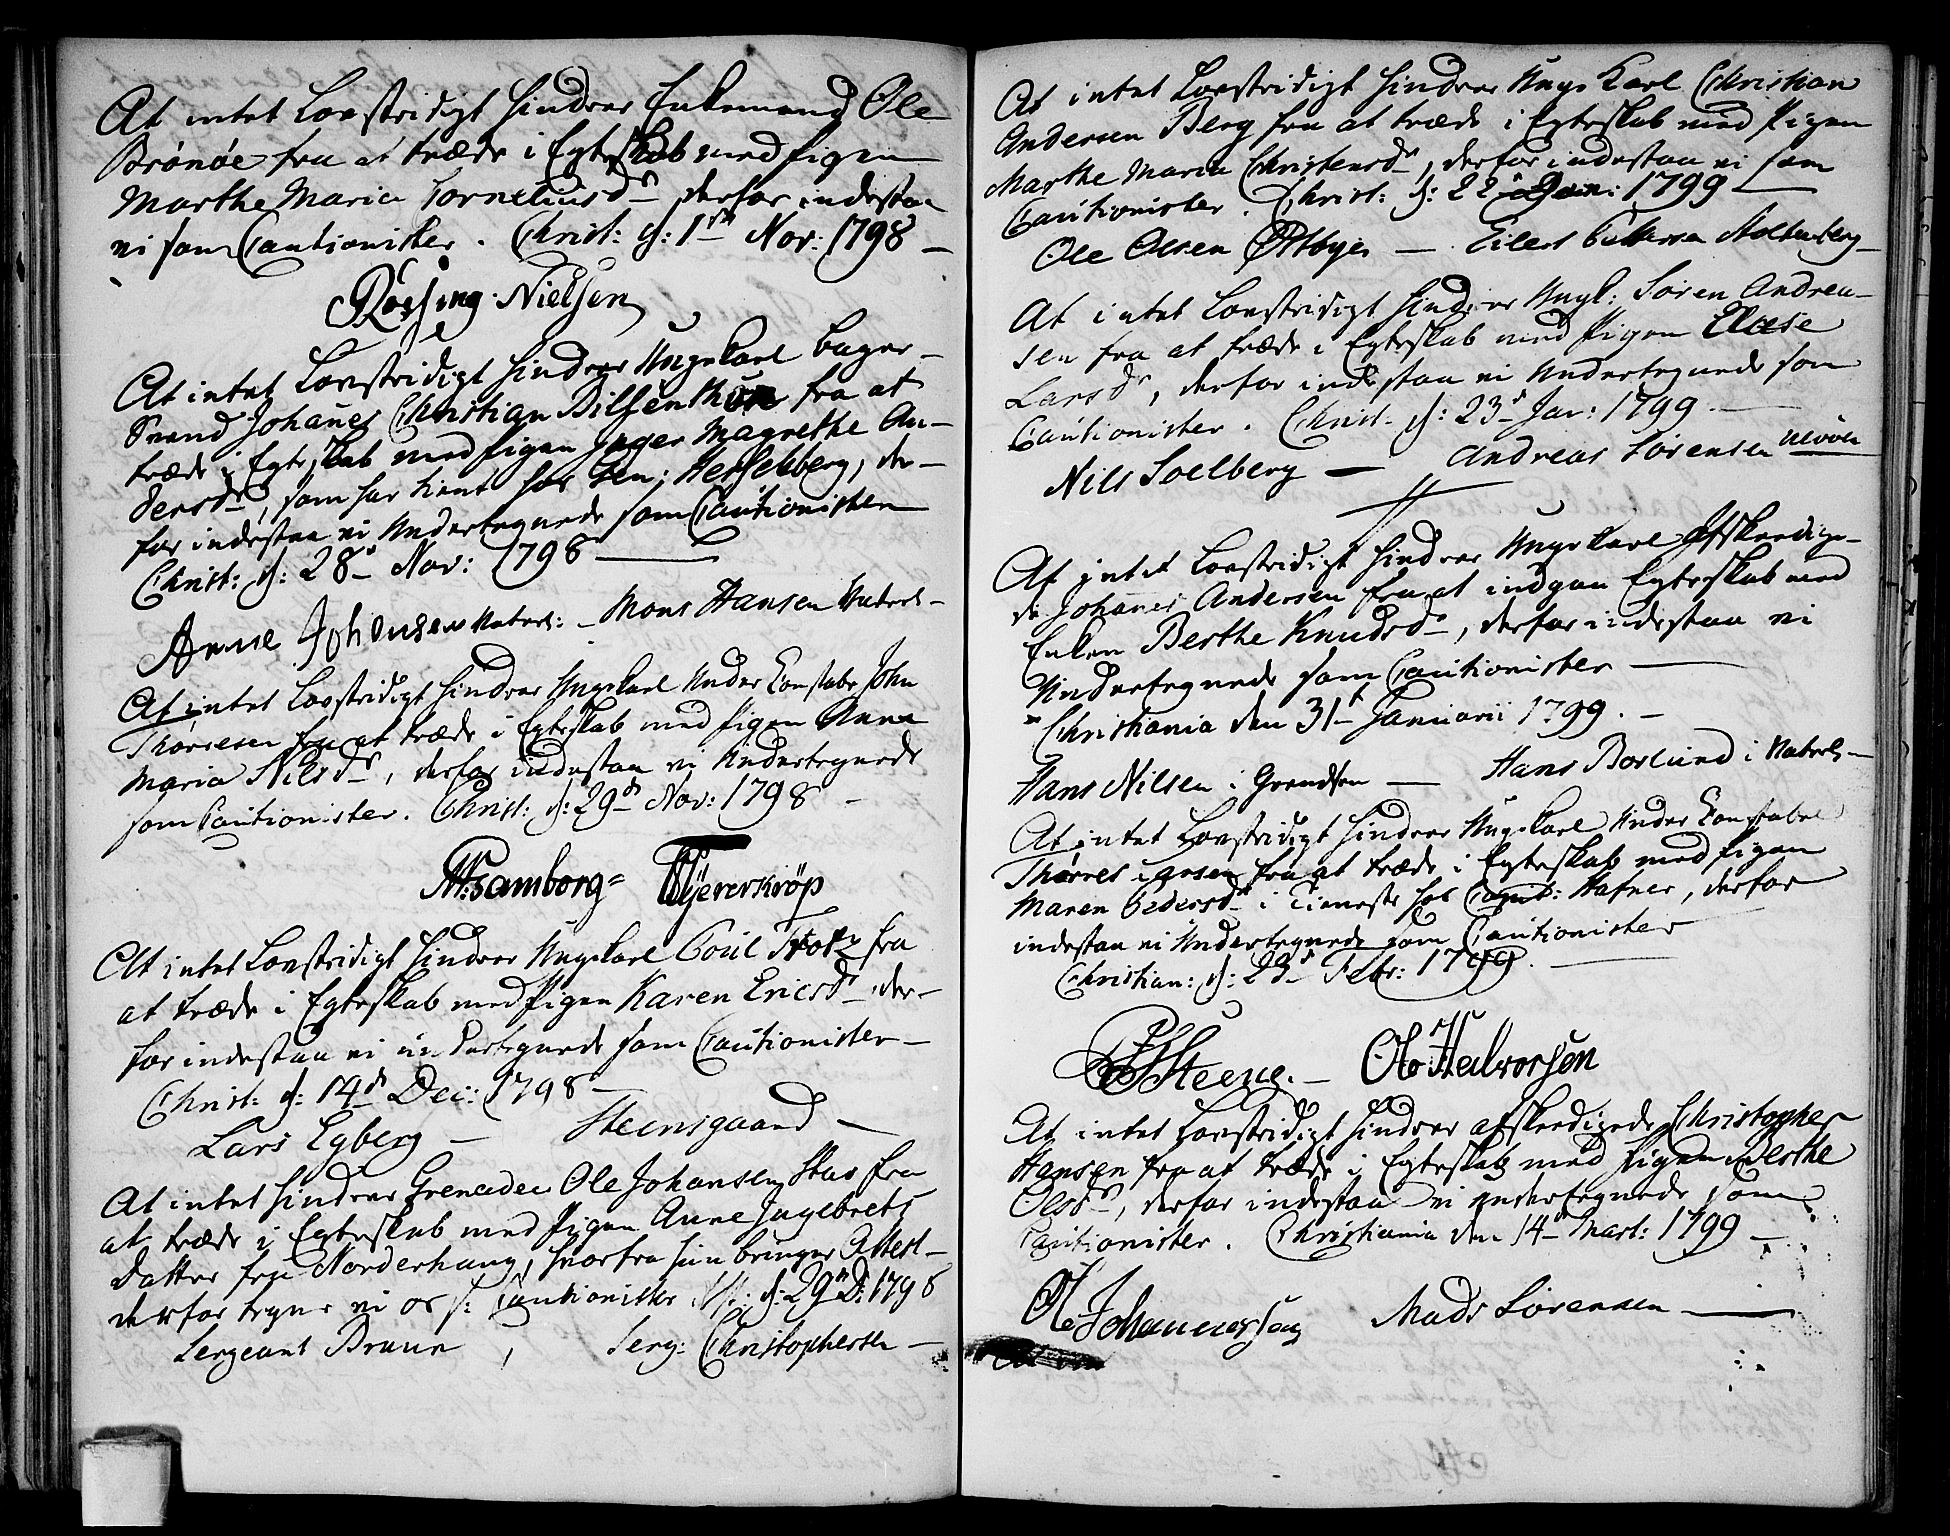 At intet Lovstridigt hindrer Enkemand Ole
Brónóe fra at træde i Egteskab med Pigen
Marthe Maria Corneliusd., derfor indestaa
vi som Cautionister. Christ: d: 1ste Nov: 1798 —
Røesing. Nielsen
At intet Lovstridigt hindrer Ungekarl Bager-
Svend Johanes Christian Bilsenthun fra at
træde i Egteskab med Pigen Inger Magrethe An-
dersd., som har tient hos Hersleberg, der-
for indestaa vi Undertegnede som Cautionister
Christ: d: 28d Nov: 1798 —
Arnne Johensen Matros: — Mons Hansen Matros —
At intet Lovstridigt hindrer Ungekarl Under Constabe John
Thorresen fra at træde i Egteskab med Pigen Anna
Maria Nilsd., derfor indestaa vi Undertegnede
som Cautionister. Christ: d: 29d Nov: 1798 —
Samborg = Tyvererkröp
At intet Lovstridigt hindrer Ungekarl Poul Trotz fra
at træde i Egteskab med Pigen Karen Ericsd., der-
for indestaa vi undertegnede som Cautionister —
Christ: d: 14d Dec: 1798 —
Lars Egberg — Steensgaard —
At intet hindrer Grenadeer Ole Johansen Stad fra
at træde i Egteskab med Pigen Anne Ingebrets
Datter fra Norderhaug, hvorfra hun bringer Attest —
derfor tegner vi os s: Cautionister d: 29d D: 1798
Sergeant Bruun, Serg: Christophersen —
At intet Lovstridigt hindrer Unge Karl Christian
Andersen Berg fra at træde i Egteskab med Pigen
Marthe Maria Christensd., derfor indestaa vi som
Cautionister. Christ: d: 22d Jan: 1799 —
Ole Olsen Østbyes — Eilert Pettersen Stoltenberg —
At intet Lovstridigt hindrer Ungk: Sören Andrea-
sen fra at træde i Egteskab med Pigen Eleese
Larsd., derfor indestaa vi Undertegnede som
Cautionister. Christ: d: 23d Jan: 1799 —
Nils Soelberg — Andreas Sörensen
At intet Lovstridigt hindrer Ungekarl Afskeedige-
de Johanes Andersen fra at indgaa Egteskab med
Enken Berthe Knudsd., derfor indestaa vi
Undertegnede som Cautionister —
Christiania den 31t Januarii 1799. —
Hans Nilsen i Grendsen — Hans Borlund i Matros —
At intet Lovstridigt hindrer Ungekarl Under Constabel
Thorres Larsen fra at træde i Egteskab med Pigen
Maren Pedersd. i Tieneste hos Capit: Hafner, derfor
indestaa vi Undertegnede som Cautionister
Christian: d: 23d Febr: 1799. —
Steene. — Ole Halvorsen
At intet Lovstridigt hindrer afskeedigede Christopher
Hansen fra at træde i Egteskab med Pigen Berthe
Olesd., derfor indestaa vi undertegnede som
Cautionister. Christiania den 14d Mart: 1799 —
Ole Johannessen Mads Sörensen —